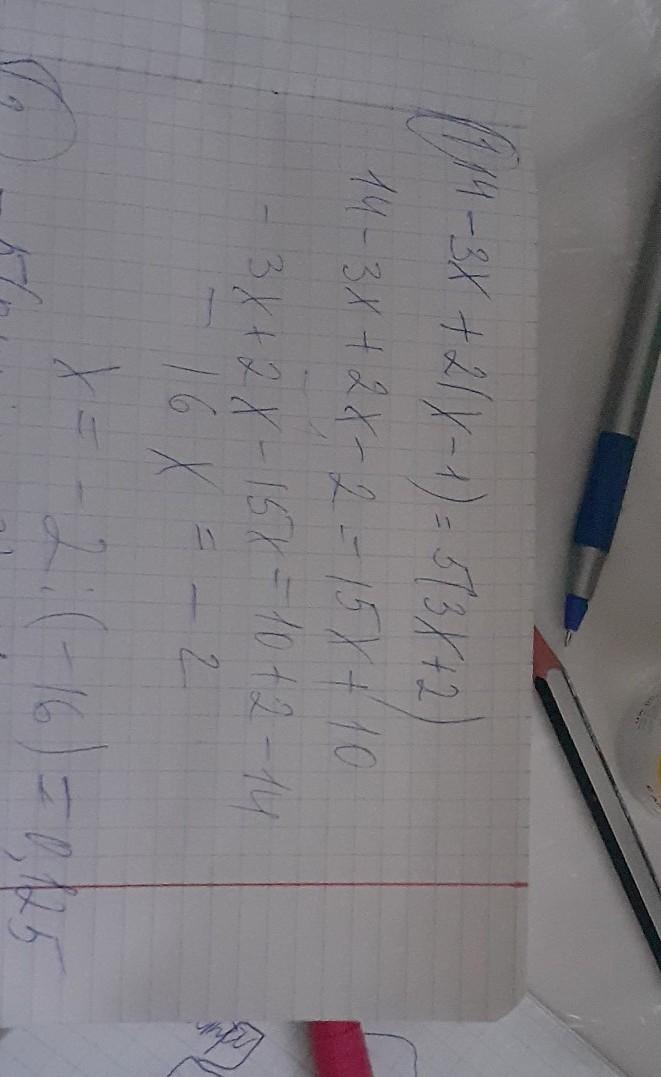 1) 14 - 3x + 2(x - 1) = 5(3x + 2)
14 - 3x + 2x - 2 = 15x + 10
- 3x + 2x - 15x = 10 + 2 - 14
- 16x = - 2
x = - 2 : (- 16) = 0,125